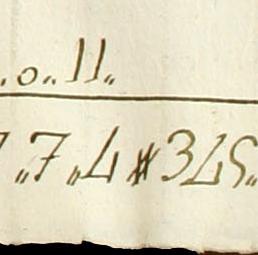 .o.. 11..
7..7..4#345..